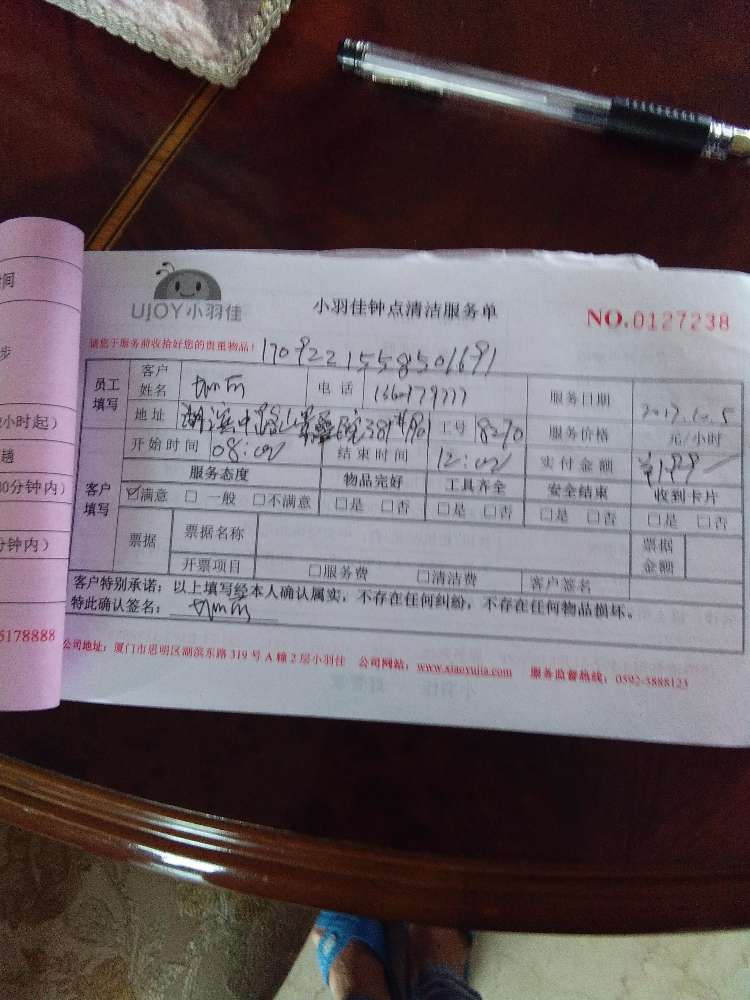 间
步
小时起）
趟
30分钟内）
分钟内）
5178888
UJOY小羽佳
小羽佳钟点清洁服务单
NO.0127238
请您于服务前收拾好您的贵重物品！
员工填写
客户姓名
电话
服务日期
地址
工号 8270
服务价格
元/小时
开始时间 08:00
结束时间 12:00
实付金额 ¥199
客户填写
服务态度
物品完好
工具齐全
安全结束
收到卡片
☑满意 □一般 □不满意
□是 □否
□是 □否
□是 □否
□是 □否
票据
票据名称
票据金额
开票项目
□服务费 □清洁费
客户签名
客户特别承诺：以上填写经本人确认属实，不存在任何纠纷，不存在任何物品损坏。
特此确认签名：
公司地址：厦门市思明区湖滨东路 319 号 A 幢 2 层小羽佳 公司网站：www.xiaoyujia.com 服务监督热线：0592-5888123